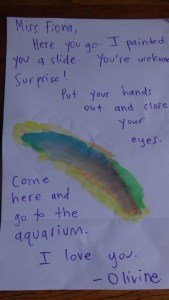 Miss Fiona,
Here you go. I painted
you a slide. You're welcome
Surprise!
Put your hands
out and close
your
eyes.
Come
here and
go to the
aquarium.
I love you.
- Olivine